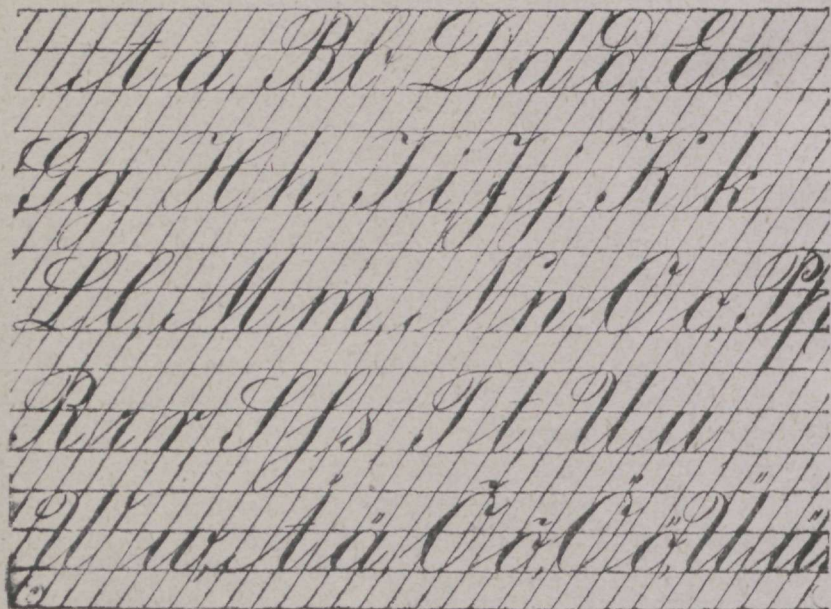 A a, B b D d ð, E e,
G g, H h, I i, J j, K k,
L l, M m, N n, O o, P p
R r r S ſ s, T t, U u
W w, Ä ä, Õ õ, Ö ö, Ü ü